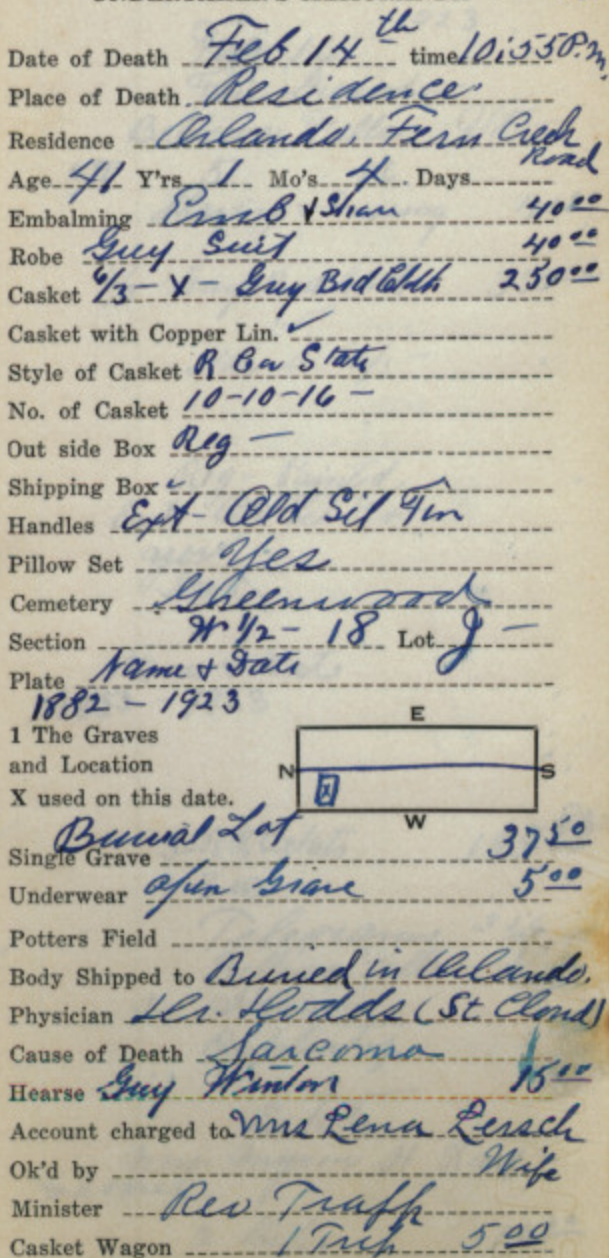 Date of Death Feb 14th time 10:55 P.m.
Place of Death Residence
Residence Orlando. Fern Creek Road
Age 41 Y'rs 1 Mo's 4 Days
Embalming Emb & Shav 40 00
Robe Grey Suit 40 00
Casket 6/3 - X - Grey Brd Clth 250 00
Casket with Copper Lin. ✓
Style of Casket State
No. of Casket 10-10-16 -
Out side Box Reg -
Shipping Box ✓
Handles Ext - Old Sil
Pillow Set Yes
Cemetery Greenwood
Section W 1/2 - 18 Lot J -
Plate Name & Date
1882 - 1923
E
1 The Graves
and Location
N S
X used on this date.
X
W
Burial Lot
Single Grave 37 50
Underwear open Grave 5 00
Potters Field
Body Shipped to Buried in Orlando.
Physician Dr. Dodds (St Cloud)
Cause of Death Sarcoma
Hearse Grey Winton 15 00
Account charged to Mrs Lena Lersch
Ok'd by Wife
Minister Rev
Casket Wagon 1 Trip 5 00